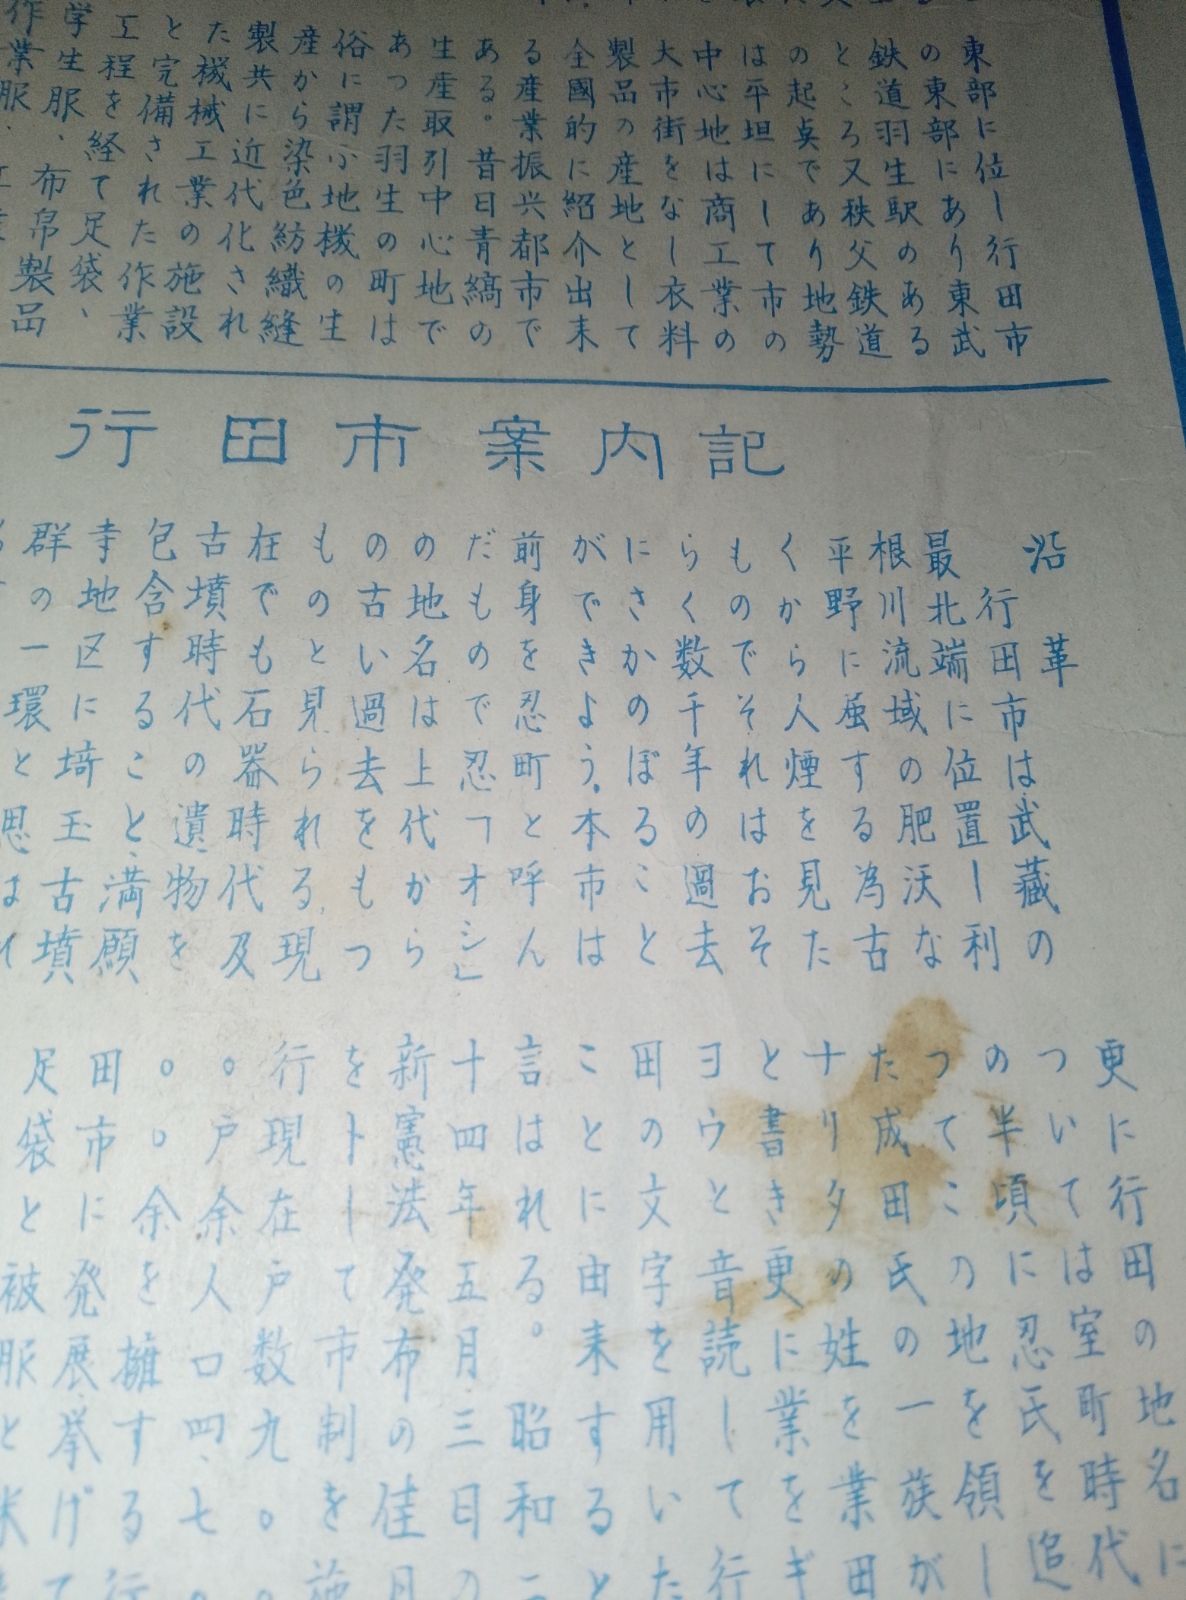 東部に位し行田市
の東部にあり東武
鉄道羽生駅のある
ところ又秩父鉄道
の起点であり地勢
は平坦にして市の
中心地は商工業の
大市街をなし衣料
製品の産地として
全國的に紹介出来
る産業振兴都市で
ある。昔日青縞の
生産取引中心地で
あった羽生の町は
俗に謂ふ地機の生
産から染色紡織縫
製共に近代化され
た機械工業の施設
と完備された作業
工程を経て足袋、
学生服、布帛製品
作業服、
行田市案内記
沿革
行田市は武藏の
最北端に位置し利
根川流域の肥沃な
平野に座する為古
くから人煙を見た
ものでそれはおそ
らく数千年の過去
にさかのぼること
ができよう。本市は
前身を忍町と呼ん
だもので忍「オシ」
の地名は上代から
の古い過去をもつ
ものと見られる、現
在でも石器時代及
古墳時代の遺物を
包含すること、満願
寺地区に埼玉古墳
群の一環と思はれ
更に行田の地名に
ついては室町時代
の半頃に忍氏を追
ってこの地を領し
た成田氏の一族が
ナリタの姓を業田
と書き更に業をギ
ヨウと音読して行
田の文字を用いた
ことに由来すると
言はれる。昭和二
十四年五月三日の
新憲法発布の佳月
をトして市制を施
行現在戸数九〇〇
〇戸余人口四、七〇
〇〇余を擁する行
田市に発展挙げて
足袋と被服と米